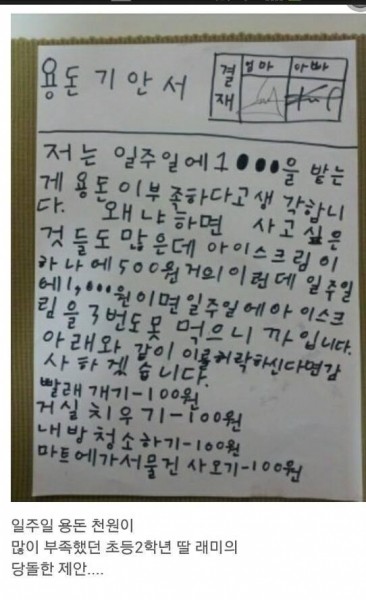 용돈 기안서
결재
엄마 아빠
저는 일주일에 1000을 받는
게 용돈이 부족하다고 생각합니
다. 왜냐하면 사고 싶은
것들도 많은데 아이스크림이
하나에 500원 거의 이런데 일주일
에 1,000원이면 일주일에 아이스크
림을 3번도 못 먹으니까입니다.
아래와 같이 이를 허락하신다면 감
사하겠습니다.
빨래 개기-100원
거실 치우기-100원
내 방 청소하기-100원
마트에 가서 물건 사오기-100원
일주일 용돈 천원이
많이 부족했던 초등2학년 딸 래미의
당돌한 제안....